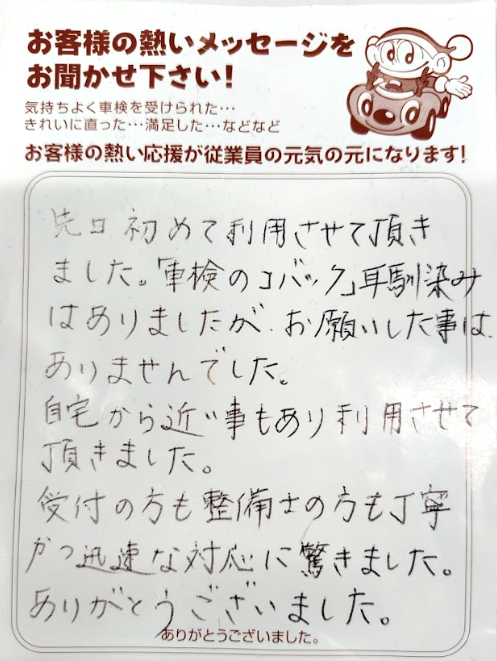 お客様の熱いメッセージを
お聞かせ下さい！
気持ちよく車検を受けられた…
きれいに直った…満足した…などなど
お客様の熱い応援が従業員の元気の元になります！
先日初めて利用させて頂き
ました。「車検のコバック」耳馴染み
はありましたが、お願いした事は、
ありませんでした。
自宅から近い事もあり利用させて
頂きました。
受付の方も整備士の方も丁寧
かつ迅速な対応に驚きました。
ありがとうございました。
ありがとうございました。